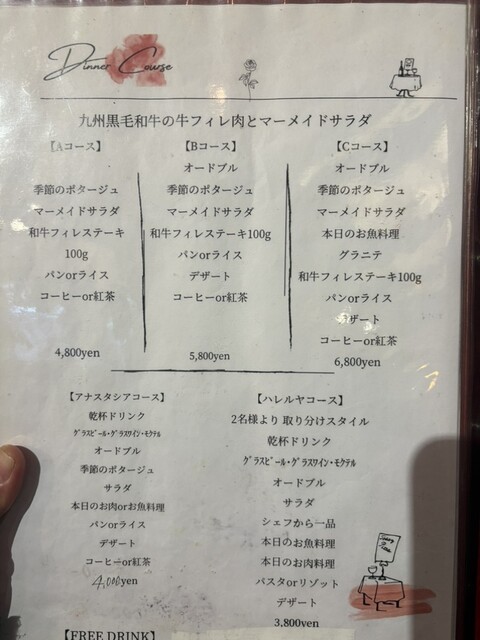 Dinner Course
九州黒毛和牛の牛フィレ肉とマーメイドサラダ
【Aコース】
季節のポタージュ
マーメイドサラダ
和牛フィレステーキ
100g
パンorライス
コーヒーor紅茶
4,800yen
【Bコース】
オードブル
季節のポタージュ
マーメイドサラダ
和牛フィレステーキ100g
パンorライス
デザート
コーヒーor紅茶
5,800yen
【Cコース】
オードブル
季節のポタージュ
マーメイドサラダ
本日のお魚料理
グラニテ
和牛フィレステーキ100g
パンorライス
デザート
コーヒーor紅茶
6,800yen
【アナスタシアコース】
乾杯ドリンク
ｸﾞﾗｽﾋﾞｰﾙ・ｸﾞﾗｽﾜｲﾝ・ﾓｸﾃﾙ
オードブル
季節のポタージュ
サラダ
本日のお肉orお魚料理
パンorライス
デザート
コーヒーor紅茶
4,000yen
【ハレルヤコース】
2名様より 取り分けスタイル
乾杯ドリンク
ｸﾞﾗｽﾋﾞｰﾙ・ｸﾞﾗｽﾜｲﾝ・ﾓｸﾃﾙ
オードブル
サラダ
シェフから一品
本日のお魚料理
本日のお肉料理
パスタorリゾット
デザート
3.800yen
【FREE DRINK】